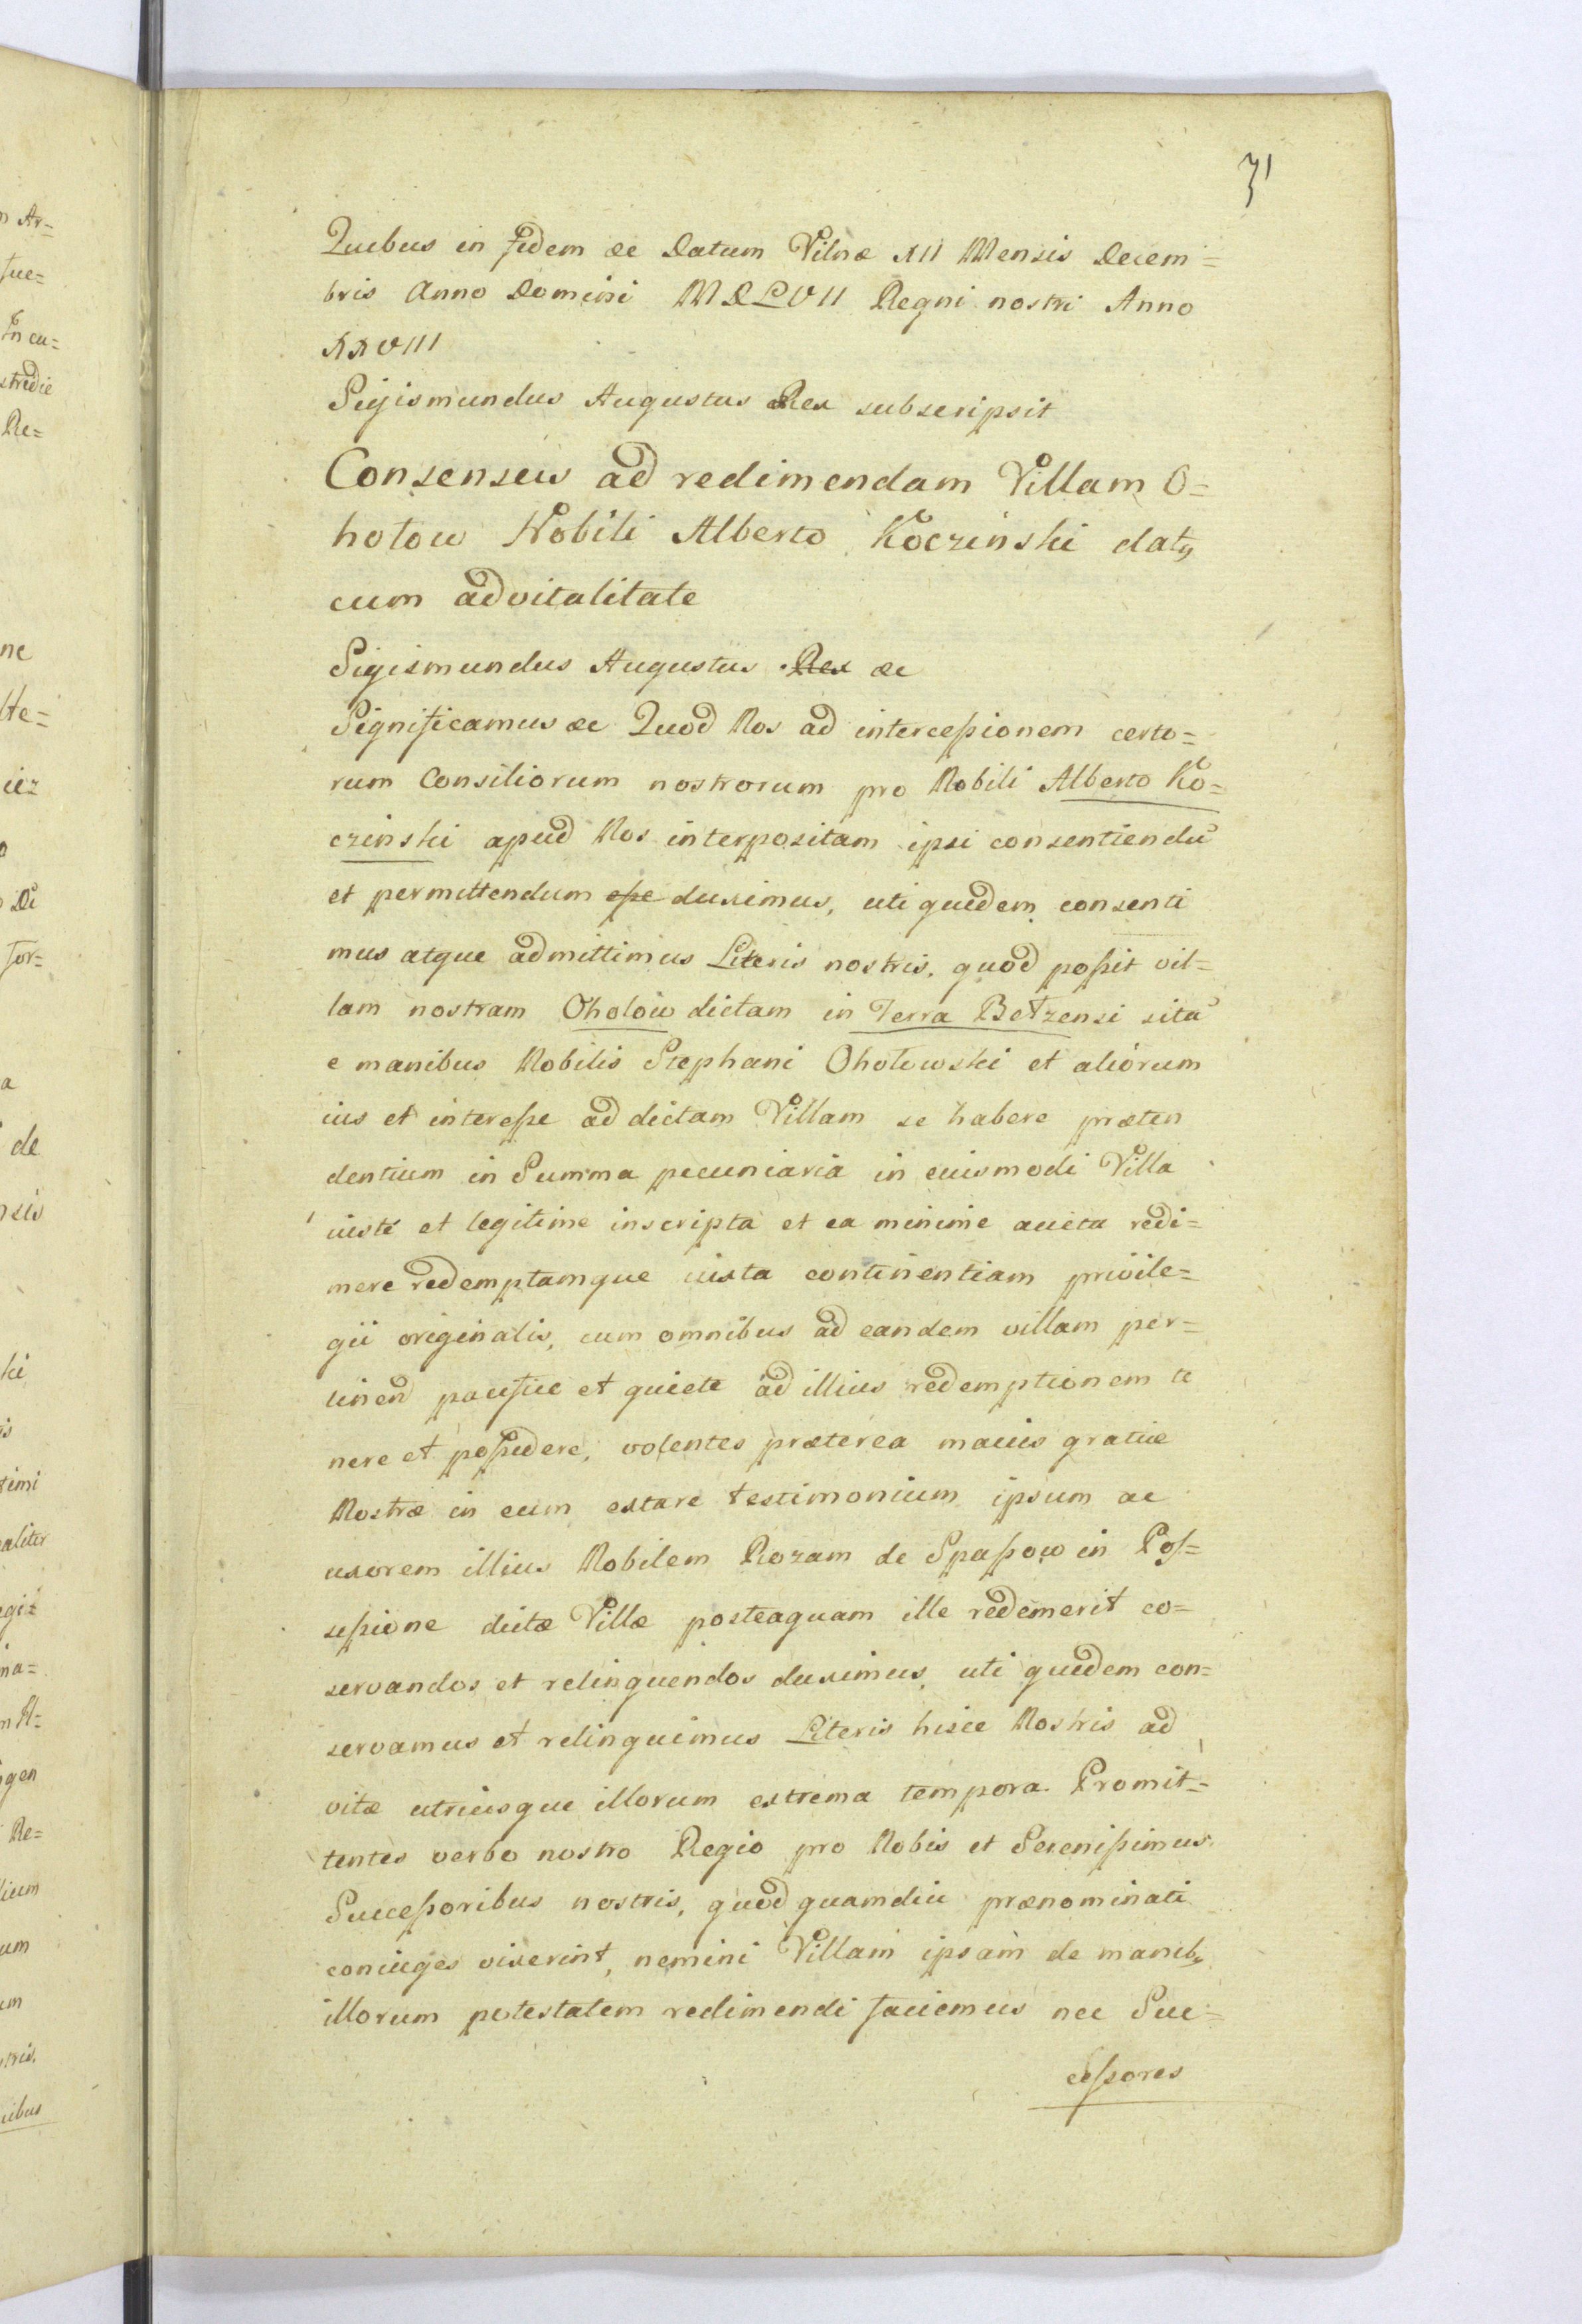 31
Quibus in fidem &c Datum Vilnæ XII Mensis Decem=
bris Anno Domini MDLVII Regni nostri Anno
XXVIII
Sigismundus Augustus Rex subscripsit
Consensus ad redimendam Villam O=
hołow Nobili Alberto Koczinski datꝰ
cum advitalitate
Sigismundus Augustus Rex &c
Significamus &c Quod Nos ad intercessionem certo=
rum Consiliorum nostrorum pro Nobili Alberto Ko=
czinski apud Nos interpositam ipsi consentiendū
et permittendum esse duximus, uti quidem consenti
mus atque admittimus Literis nostris, quod possit vil=
lam nostram Oholow dictam in Terra Betzensi sitā
e manibus Nobilis Stephani Ohołowski et aliorum
ius et interesse ad dictam Villam se habere præten
dentium in Summa pecuniaria in euismodi Villa
iusté et legitime inscripta et ea minime aucta redi=
mere redemptamque iuxta continentiam privile=
gii originalis, cum omnibus ad eandem villam per=
tinen pacifice et quiete ad illius redemptionem te
nere et possidere, volentes præterea maius gratiæ
Nostræ in eum extare testimonium ipsum ac
uxorem illius Nobilem Rozam de Spassow in Pos=
sessione dictæ Villæ posteaquam ille redemerit co=
servandos et relinquendos duximus, uti quidem con=
servamus et relinquimus Literis hisce Nostris ad
vitæ utriusque illorum extrema tempora. Promit=
tentes verbo nostro Regio pro Nobis et Serenissimus
Successoribus nostris, quod quamdiu prænominati
coniuges vixerint, nemini Villam ipsam de manibꝰ
illorum potestatem redimendi faciemus nec Suc=
cessores